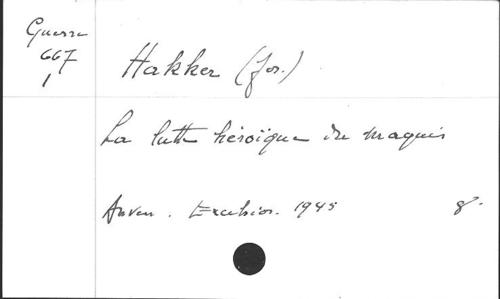 Guerre
667
1
Hakker (Jos.)
La lutte héroïque du maquis
Anvers. Excelsior. 1945 8°